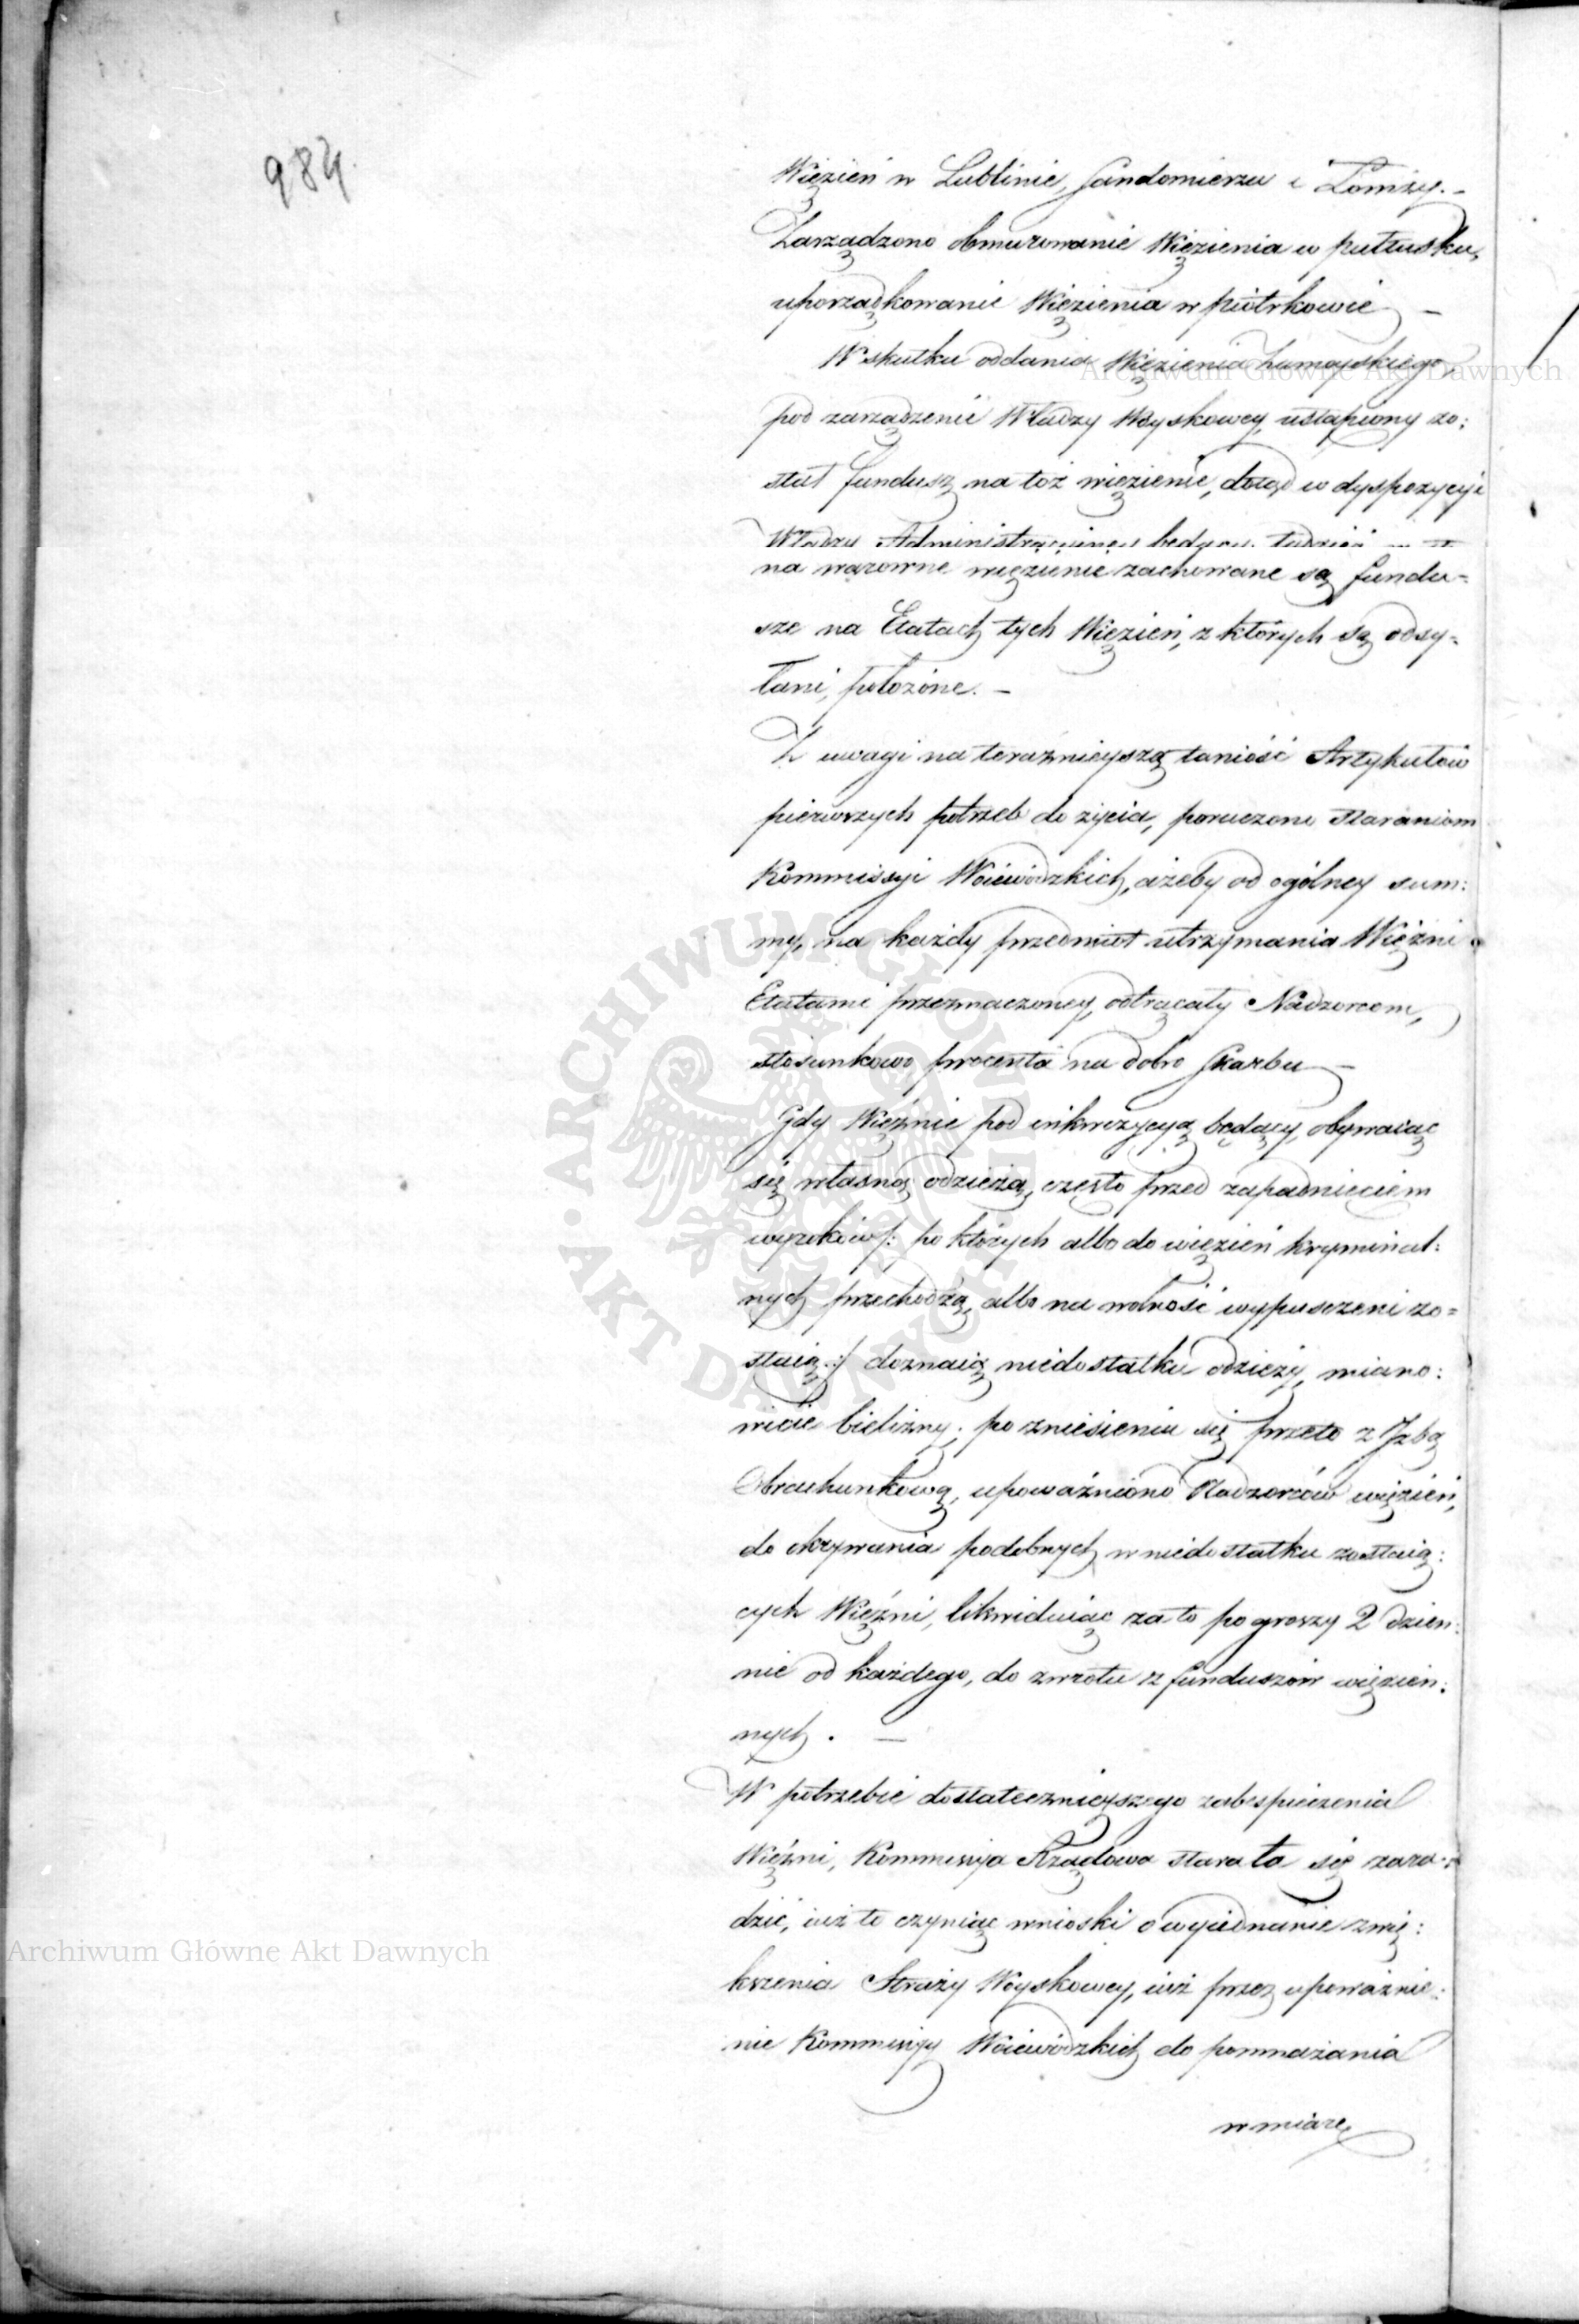 984.
Więzień w Lublinie, Sandomierzu i Łomży. -
Zarządzono obmurowanie Więzienia w pułtusku,
uporządkowanie Więzienia w piotrkowie -
W skutku oddania Więzienia Zamoyskiego,
pod zarządzenie Władzy Woyskowey, ustąpiony zo:
stał fundusz na toż więzienie, dotąd w dyspozycyi
Władzy Administracyiney będący, tudzież
na warowne więzienie zachowane są fundu=
sze na Etatach tych Więzień, z których są odsy=
łani, położone. -
Z uwagi na teraznieyszą taniość Artykułów
pierwszych potrzeb do życia, poruczono staraniom
Kommissyi Woiewódzkich, ażeby od ogólney sum:
my, na każdy przedmiot utrzymania Więźni
Etatami przeznaczoney, odtrącały Nadzorcom,
stosunkowo procenta na dobro Skarbu -
Gdy Więźnie pod inkwizycyą będący, obywaiąc
się własną odzieżą, często przed zapadnieciem
wyroków /: po których albo do więzień kryminal:
nych przechodzą, albo na wolność wypuszczeni zo=
staią :/ doznaią niedostatku odzieży, miano:
wicie bielizny; po zniesieniu się przeto z Izbą
Obrachunkową, upoważniono Nadzorców więzień,
do okrywania podobnych w niedostatku zostaią:
cych Więźni, likwiduiąc za to po groszy 2 dzien:
nie od każdego, do zwrotu z funduszów więzien:
nych. -
W potrzebie dostatecznieyszego zabespieczenia
Więźni, Kommissya Rządowa starała się zara:
dzić, iuż to czyniąc wnioski o wyiednanie zwię:
kszenia Straży Woyskowey, iuż przez upoważnie:
nie Kommissyy Woiewódzkich do pomnażania
w miarę
Archiwum Główne Akt Dawnych
Archiwum Główne Akt Dawnych
ARCHIWUM GŁÓWNE AKT DAWNYCH